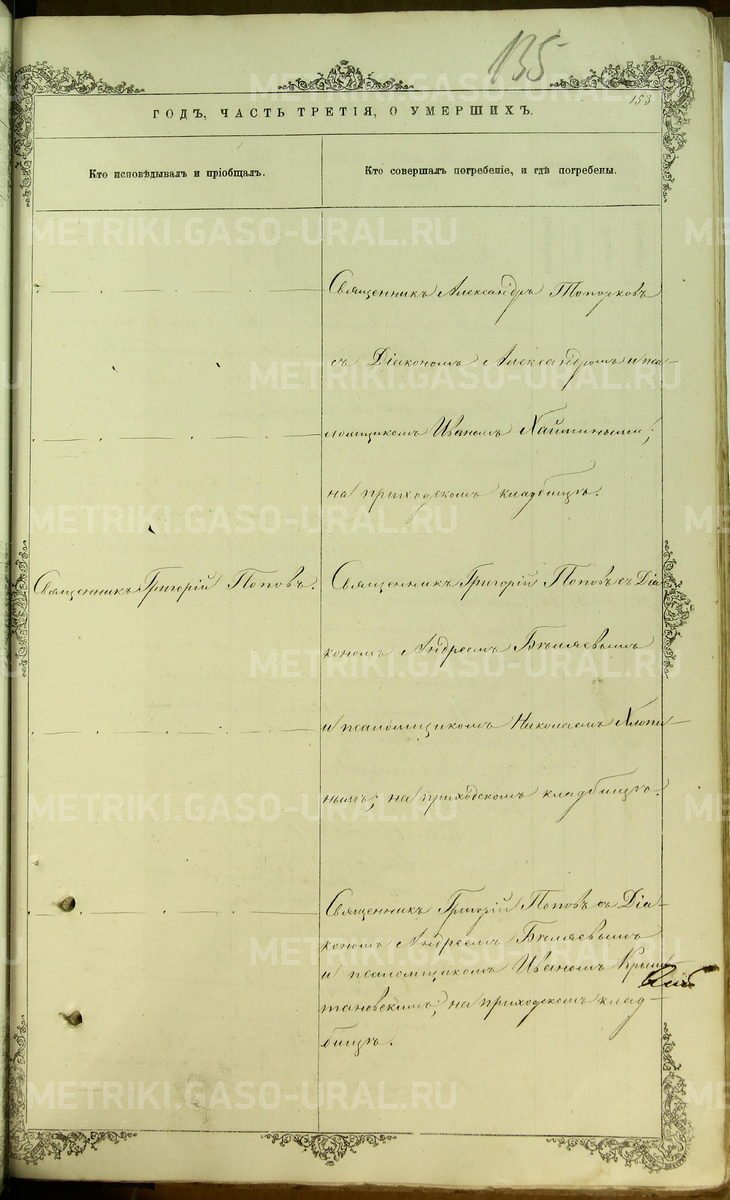 135
153
ГОДЪ, ЧАСТЬ ТРЕТІЯ, О УМЕРШИХЪ.
Кто исповѣдывалъ и пріобщалъ.
Кто совершалъ погребеніе, и гдѣ погребены.
Священникъ Александръ Топорковъ
съ Діакономъ Александромъ и пса-
ломщикомъ Иваномъ
на приходскомъ кладбищѣ.
Священникъ Григорій Поповъ.
Священникъ Григорій Поповъ съ Діа
кономъ Андреемъ Бѣляевымъ
и псаломщикомъ Николаемъ Хлопи-
нымъ; на приходскомъ кладбищѣ.
Священникъ Григорій Поповъ съ Діа-
кономъ Андреемъ Бѣляевымъ
и псаломщикомъ Иваномъ
тановскимъ; на приходскомъ клад-
бищѣ.
METRIKI.GASO-URAL.RU